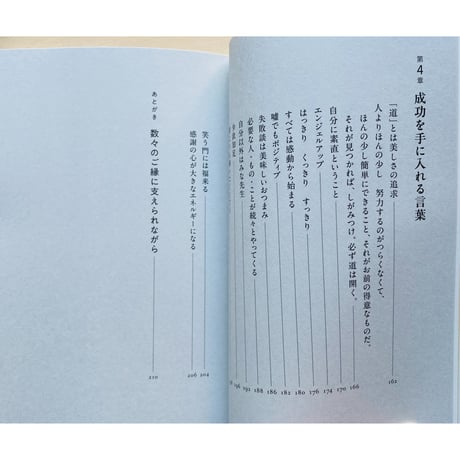 第4章 成功を手に入れる言葉
「道」とは美しさの追求 162
人よりほんの少し 努力するのがつらくなくて、
ほんの少し簡単にできること、それがお前の得意なものだ。
それが見つかれば、しがみつけ。必ず道は開く。 166
自分に素直ということ 170
エンジェルアップ 174
はっきり くっきり すっきり 176
すべては感動から始まる 180
嘘でもポジティブ 182
失敗談は美味しいおつまみ 186
必要な人・もの・ことが続々とやってくる 188
自分以外はみな先生 192
196
笑う門には福来る 204
感謝の心が大きなエネルギーになる 206
あとがき 数々のご縁に支えられながら 210